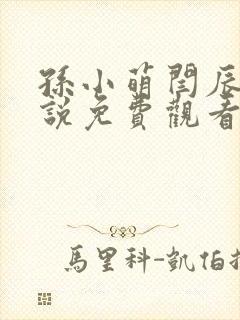 孫小萌閆辰
說免費觀看
馬里科-凱伯